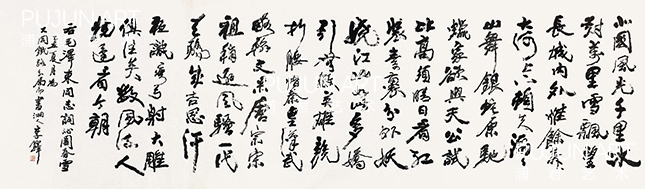 PUJUN ART
PUJUN ART
北國風光千里冰
封萬里雪飄望
長城内外惟餘莽莽
大河上下頓失滔滔
山舞銀蛇原馳
蠟象欲與天公試
比高須晴日看紅
裝素裹分外妖
嬈江山如此多嬌
引無數英雄競
折腰惜秦皇漢武
略輸文采唐宗宋
祖稍遜風騷一代
天驕成吉思汗
只識彎弓射大雕
俱往矣數風流人
物還看今朝
右毛澤東同志詞沁園春雪
李鐸